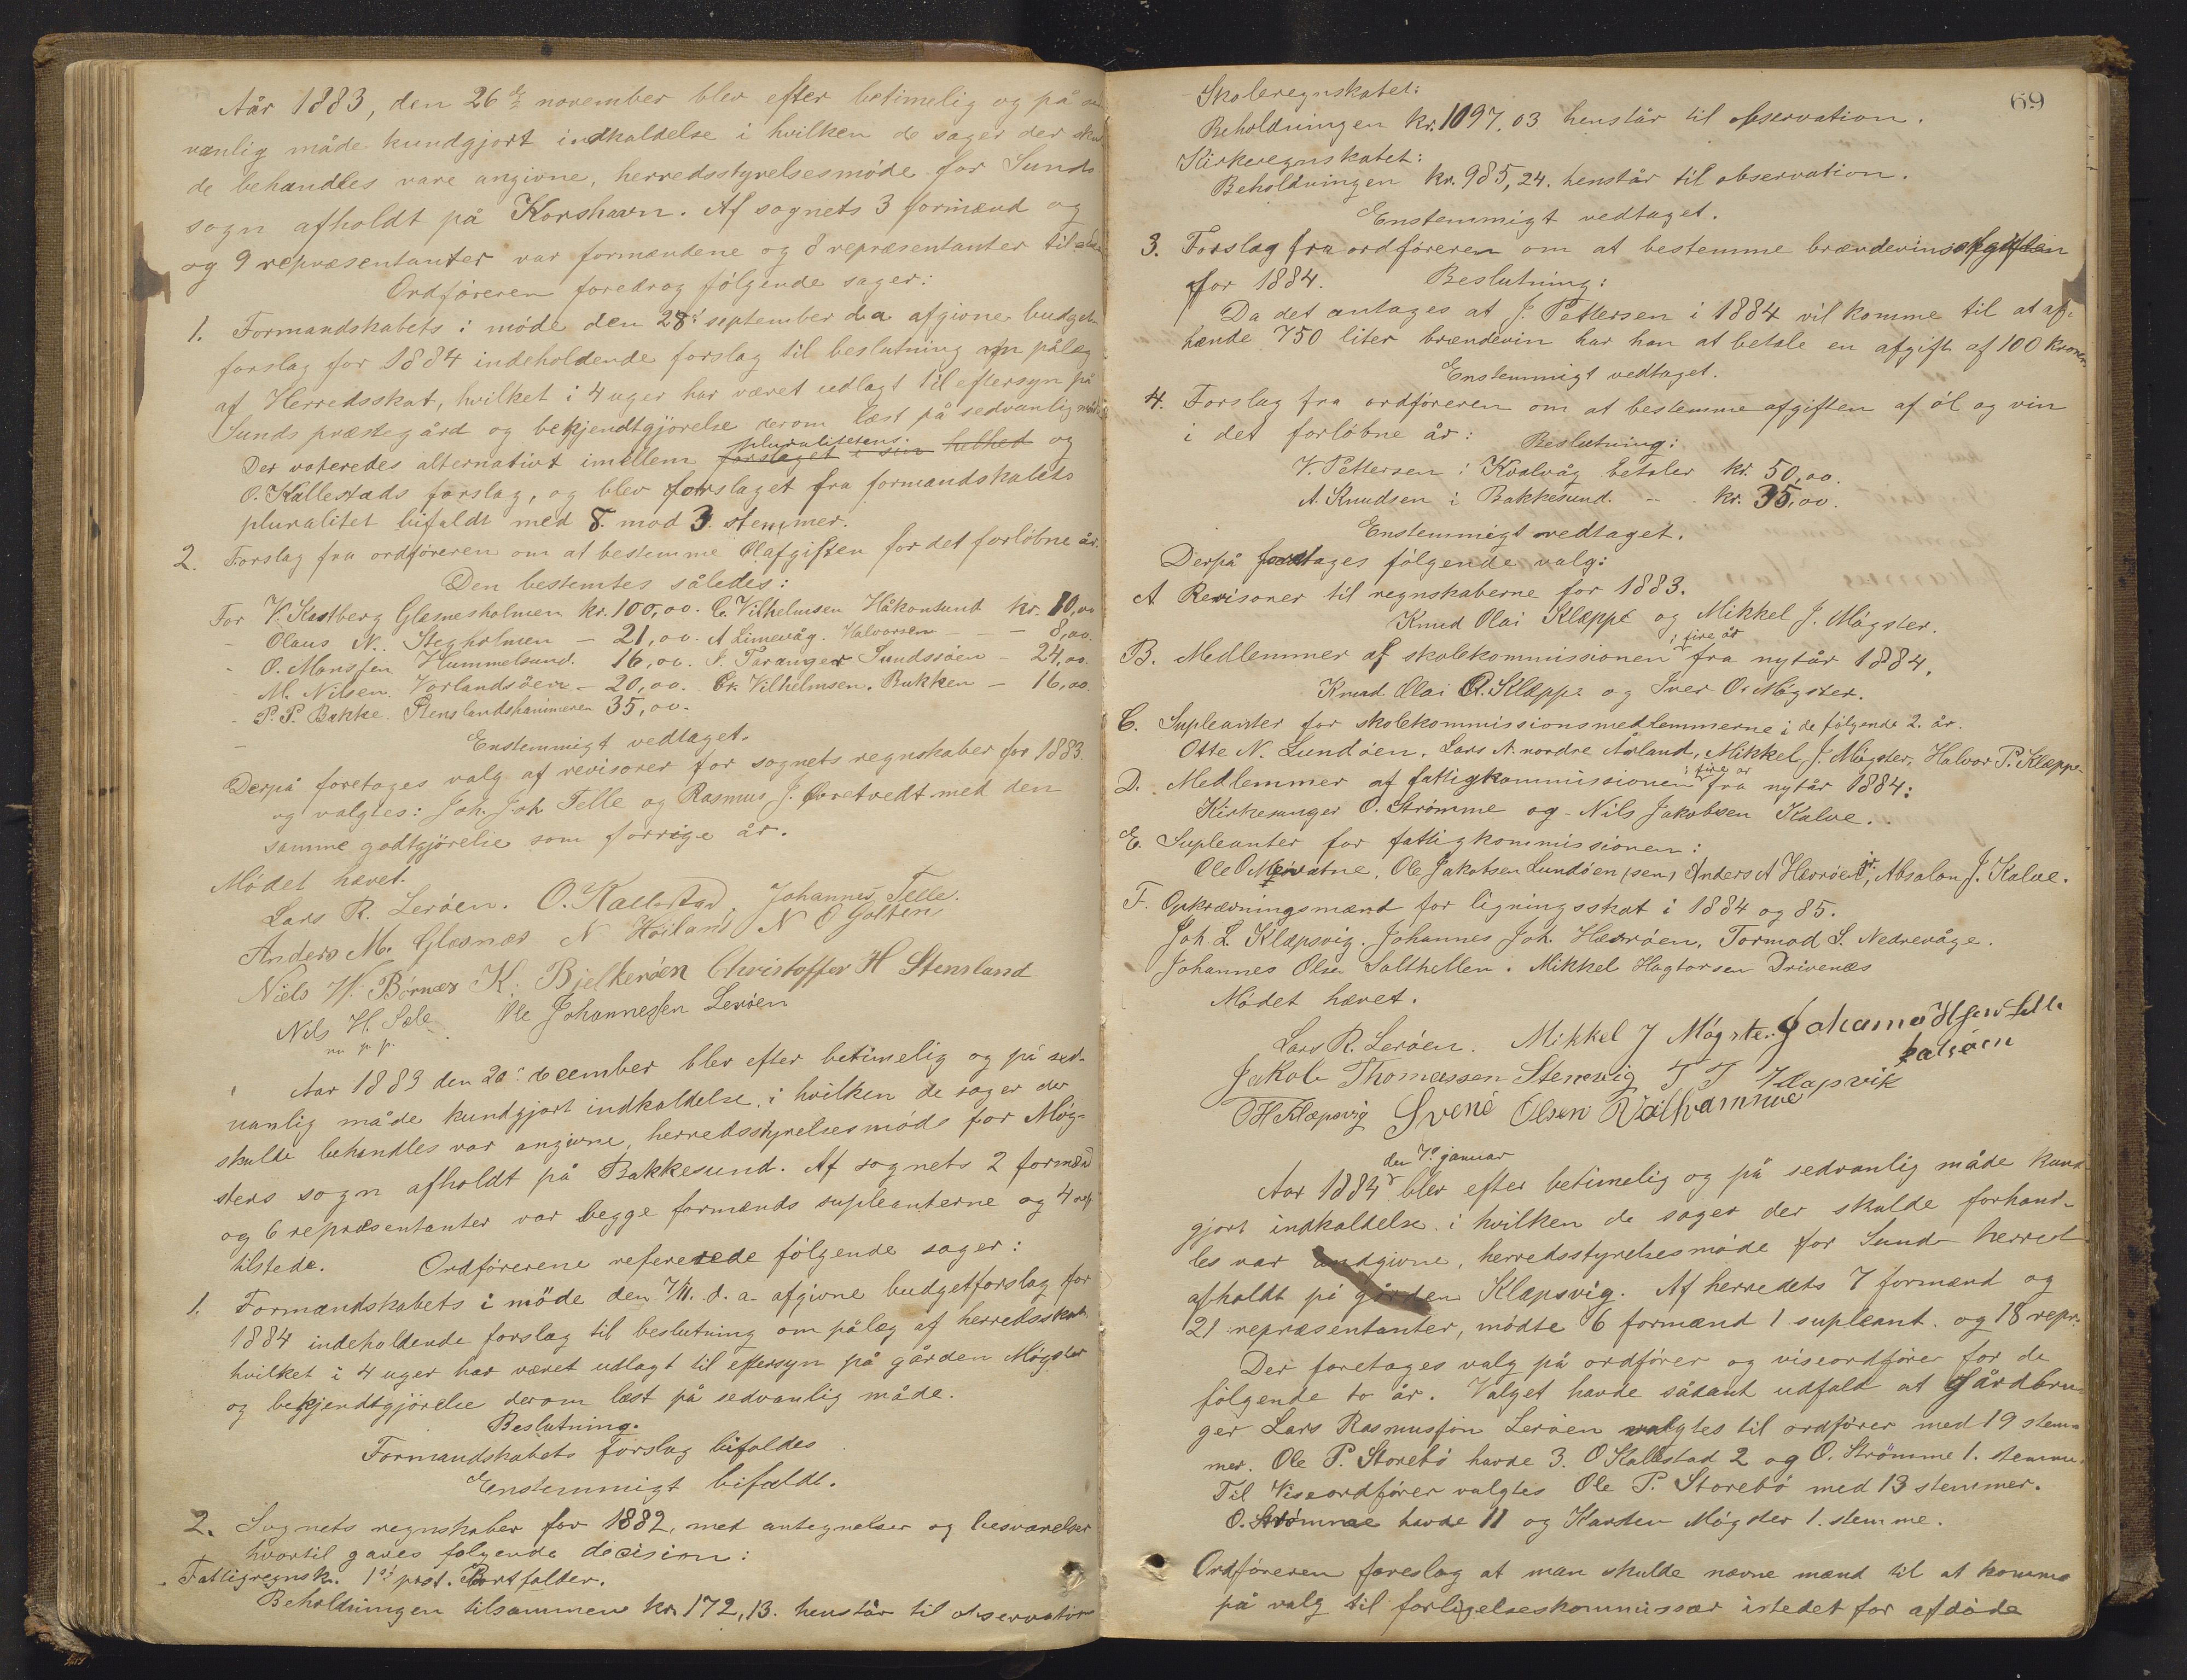 Aår 1883, den 26de november blev efter betimelig og på
vanlig måde kundgjort indkaldelse i hvilken de sager der skul
de behandles vare angivne, herredsstyrelsesmöde for Sunds
sogn afholdt på Korshavn. Af sognets 3 formænd og
og 9 repræsentanter var formændene og 8 repræsentanter tilstede
Ordföreren foredrog fölgende sager:
1. Formandskabets i möde den 28' september d.a. afgivne budget-
forslag for 1884 indeholdende forslag til beslutning om pålæg
af Herredsskat, hvilket i 4 uger har været udlagt til eftersyn på
Sunds præstegård og bekjendtgjörelse derom læst på sedvanlig måde
pluralitetens
Der voteredes alternativt imellem forslaget i sin helhed og
O. Kallestads forslag, og blev forslaget fra formandskabets
pluralitet bifaldt med 8 mod 3 stemmer.
2. Forslag fra ordföreren om at bestemme Ølafgiften for det forlöbne år.
Den bestemtes således:
For V. Kastberg Glesnesholmen kr. 100,00. C. Vilhelmsen Håkonsund kr. 10,00
- Olaus N. Stegholmen - 21,00. A Limevåg. Halvorsen - - 8,00.
- O. Monssen Hummelsund. 16,00. S. Taranger Sundssöen - 24,00.
- M. Nilsen. Vorlandsöen - 20,00. Chr. Vilhelmsen. Bukken - 16,00.
- P. P. Bakke. Stenslandshammeren 35,00.
Enstemmigt vedtaget.
Derpå foretages valg af revisorer for sognets regnskaber for 1883.
og valgtes: Joh. Joh Telle og Rasmus J. Övretvedt med den
samme godtgjörelse som forrige år.
Mödet hævet.
Lars R. Leröen. O. Kallestad. Johannes Telle.
Anders M. Glesnæs N Höiland N O Golten
Niels W. Börnes K. Bjelkeröen Christoffer H Stensland
Nils H. Sæle Ole Johannessen Leröen
m p. p.
Aar 1883 den 20' december blev efter betimelig og på sed-
vanlig måde kundgjort indkaldelse, i hvilken de sager der
skulde behandles var angivne, herredsstyrelsesmöde for Mög-
sters sogn afholdt på Bakkesund. Af sognets 2 formænd
og 6 repræsentanter var begge formænds supleanterne og 4 rep
tilstede. Ordförerene refererede fölgende sager:
1. Formændskabets i möde den 7/11. d. a. afgivne budgetforslag for
1884 indeholdende forslag til beslutning om pålæg af herredsskat
hvilket i 4 uger har været udlagt til eftersyn på gården Mögster
og bekjendtgjörelse derom læst på sedvanlig måde.
Beslutning.
Formandskabets forslag bifaldes
Enstemmigt bifaldt.
2. Sognets regnskaber for 1882, med antegnelser og besvarelser
hvortil gaves folgende decision:
Fattigregnsk. 1ste post. Bortfalder.
Beholdningen tilsammen kr. 172,13. henstår til observation
69
Skoleregnskabet:
Beholdningen kr. 1097.03 henstår til observation.
Kirkeregnskabet:
Beholdningen kr. 985,24. henstår til observation.
Enstemmigt vedtaget.
3. Forslag fra ordföreren om at bestemme brændevinsafgiften
for 1884. Beslutning:
Da det antages at J. Pettersen i 1884 vil komme til at af-
hænde 750 liter brændevin har han at betale en afgift af 100 kroner.
Enstemmigt vedtaget.
4. Forslag fra ordföreren om at bestemme afgiften af öl og vin
i det forlöbne år: Beslutning:
V. Pettersen i Kvalvåg betaler kr. 50,00.
A. Knudsen i Bakkesund. - kr. 35,00.
Enstemmigt vedtaget.
Derpå foretages fölgende valg:
A Revisorer til regnskaberne for 1883.
Knud Olai Klæppe og Mikkel J. Mögster.
i fire år
B. Medlemmer af skolekommissionen fra nytår 1884.
Knud Olai R. Klæppe og Iver O. Mögster.
C. Supleanter for skolekommissionsmedlemmerne i de fölgende 2. år.
Otte N. Lundöen, Lars N. nordre Årland, Mikkel J. Mögster, Halvor P. Klæppe.
i fire år
D. Medlemmer af fattigkommissionen fra nytår 1884:
Kirkesanger O. Strömme og Nils Jakobsen Kalve.
E. Supleanter for fattigkommissionen:
Ole O Mövatne, Ole Jakobsen Lundöen (sen) Anders A Hevröen, Absalon J. Kalve.
F. Opkrævningsmænd for ligningsskat i 1884 og 85.
Joh. L. Klæpsvig. Johannes Joh. Hevröen, Tormod S. Nedrevåge.
Johannes Olsen Salthellen. Mikkel Hagtorsen Drivenes
Mödet hævet.
Lars R. Leröen. Mikkel J Mögster
Jakob Thomassen Stenevig T T Klapsvik
O H Klæpsvig Svend Olsen
den 7' januar
Aar 1884 blev efter betimelig og på sedvanlig måde kund-
gjort indkaldelse i hvilken de sager der skulde forhand-
les var andgivne, herredsstyrelsesmöde for Sund herred
afholdt på gården Klæpsvig. Af herredets 7 formænd og
21 repræsentanter, mödte 6 formænd 1 supleant. og 18 repr.
Der foretages valg på ordförer og viseordförer for de
fölgende to år. Valget havde sådant udfald at Gårdbru-
ger Lars Rasmussön Leröen valgtes til ordförer med 19 stem-
mer. Ole P. Storebö havde 3. O Kallestad 2 og O. Strömme 1. stemme.
Til Viseordförer valgtes Ole P. Storebö med 13 stemmer.
O. Strömme havde 11 og Karsten Mögster 1. stemme.
Ordföreren foreslog at man skulde nævne mænd til at komme
på valg til forligelseskommissær istedet for afdöde